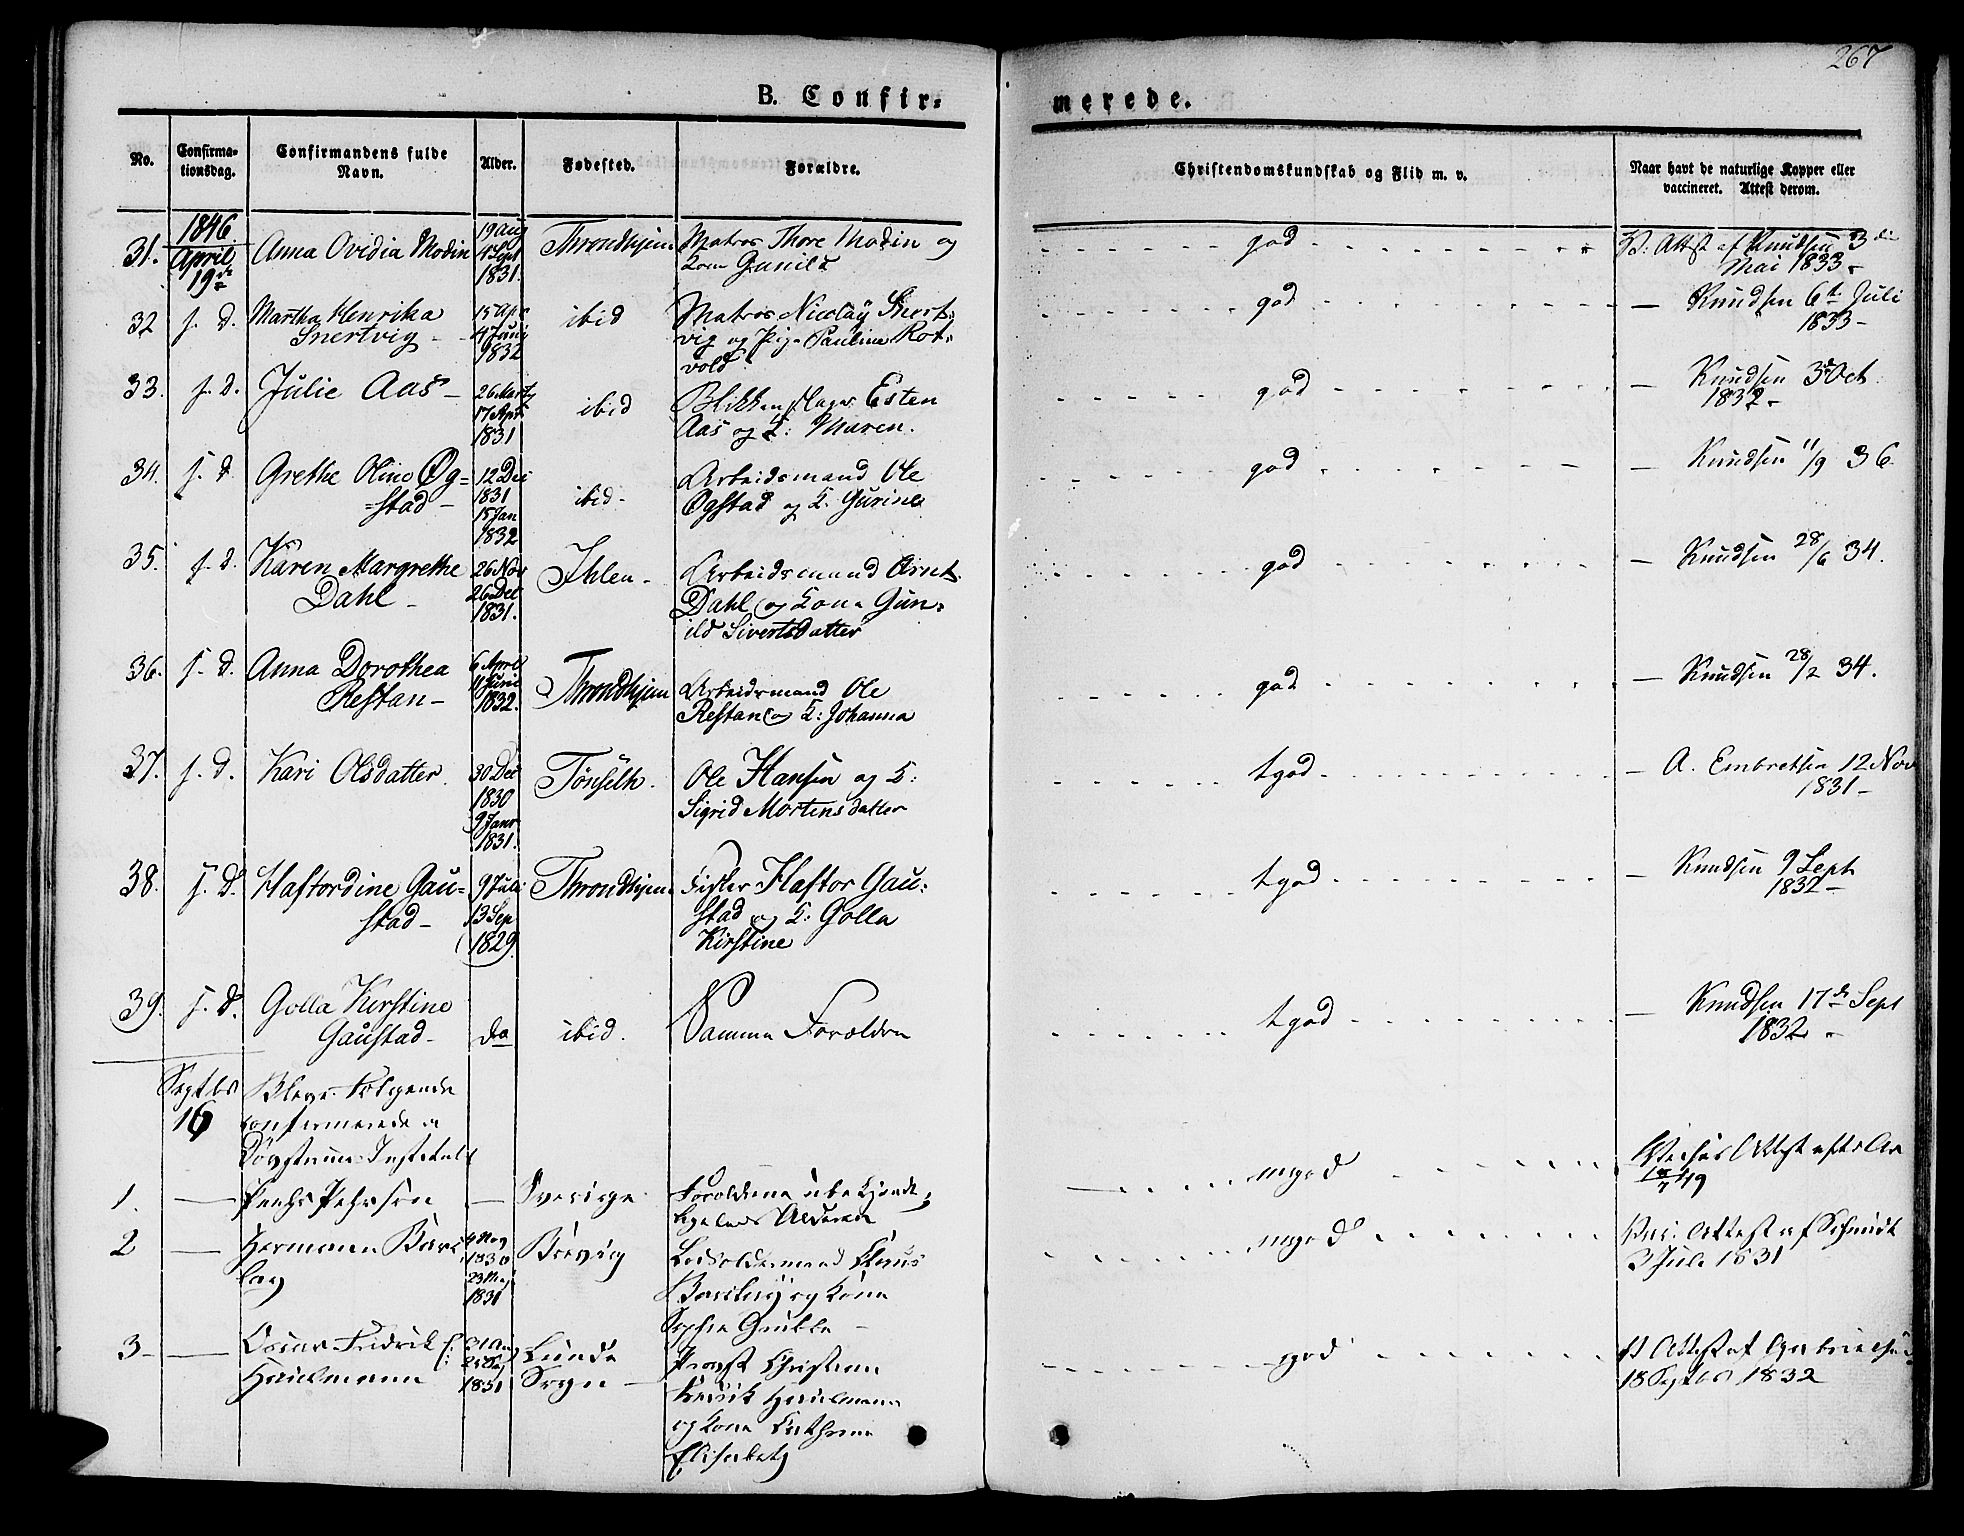 267
B. Confir-
merede.
No.
Confirma-
tionsdag.
Confirmandens fulde
Navn.
Alder.
Fødested.
Forældre.
Christendomskundskab og Flid m. v.
Naar havt de naturlige Kopper eller
vaccineret. Attest derom.
1846
31. April 19de Anna Ovidia Modin 19 Aug 4 Sept 1831. Throndhjem Matros Thore Modin og
Kone Gunild
god
V. Attst af Knudsen 3die
Mai 1833
32 s. d. Martha Henrika
Snertvig 15 Apr 4 Juni 1832 ibid Matros Nicolay Snert-
vig og Pig. Pauline Rot-
vold
god
— Knudsen 6t Juli
1833 -
33. s. d. Julie Aas - 26 Marts 17 Apr 1831 ibid Blikkenslager Esten
Aas og K: Maren.
god
— Knudsen 3d Oct.
1832 -
34. s. d. Grethe Oline Øg-
stad - 12 Dec 1831 15 Jan 1832 ibid - Arbeidsmand Ole
Øgstad og K. Gurine
god
— Knudsen 11/9 36.
35. s. d. Karen Margrethe
Dahl - 26 Nov 26 Dec 1831. Ihlen - Arbeidsmand Arnt
Dahl og Kone Gun-
ild Sivertsdatter
god
— Knudsen 28/6 34.
36. s. d. Anna Dorothea
Restan - 6 April 11 Juni 1832. Throndhjem Arbeidsmand Ole
Restan og K: Johanna
god
— Knudsen 28/2 34.
37. s. d. Kari Olsdatter. 30 Dec 1830 9 Janr 1831. Tønseth. Ole Hansen og K:
Sigrid Mortensdatter
tgod
— A. Embretsen 12 Nov
1831 -
38. s. d. Haftordine Gau-
stad - 9 Juli 13 Sep 1829 Throndhjem Fisker Haftor Gau-
stad og K: Golla
Kirstine
tgod
— Knudsen 9 Sept
1832 -
39. s. d. Golla Kirstine
Gaustad - do ibid. Samme Forældre
tgod
— Knudsen 17de Sept
1832 -
Septbr
16 Bleve følgende
confirmerede i
Døvstumme-Institutet
1. — Pehrsen — Sverige. Forældrene ubekjendte,
Alderen
mgod
Attest
2 — Hermann Barc
lay 1830 23 Maj 1831 Brevig Claus
Barclay og Kone
Sophie
mgod
Vac. Attest af Schmidt
3 Juli 1831
3 - — Oscar Fredrik
1831 Lunde
Sogn - Provst Christian
Fredrik
og Kone Cathrine
Elisabeth
god
Attest af Gabrielsen
18 Septbr 1832